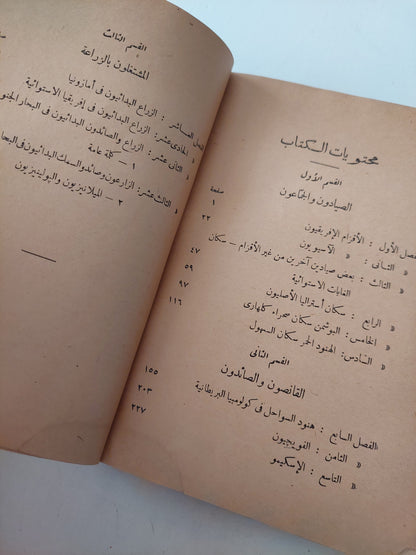 محتويات الكتاب
القسم الأول
الصيادون والجماعون
صفحة
الفصل الأول : الأقزام الإفريقيون ١
« الثانى : « الآسيويون ٢٢
« الثالث : بعض صيادين آخرين من غير الأقزام — سكان
الغابات الاستوائية ٤٧
« الرابع : سكان أستراليا الأصليون ٥٩
« الخامس : البوشمن سكان صحراء كلهارى ٩٧
« السادس : الهنود الحمر سكان السهول ١١٦
القسم الثانى
القانصون والصائدون
الفصل السابع : هنود السواحل فى كولومبيا البريطانية ١٥٥
« الثامن : الفويجيون ٢٠٣
« التاسع : الإسكيمو ٢٢٧
القسم الثالث
المشتغلون بالزراعة
الفصل العاشر : الزراع البدائيون فى أمازونيا
« الحادى عشر : الزراع البدائيون فى إفريقيا الاستوائية
« الثانى عشر : الزراع والصائدون البدائيون فى البحار الجنو
١ — كلمة عامة
« الثالث عشر : الزارعون وصائدو السمك البدائيون فى البحا
٢ — الميلانيزيون والبولينيزيون